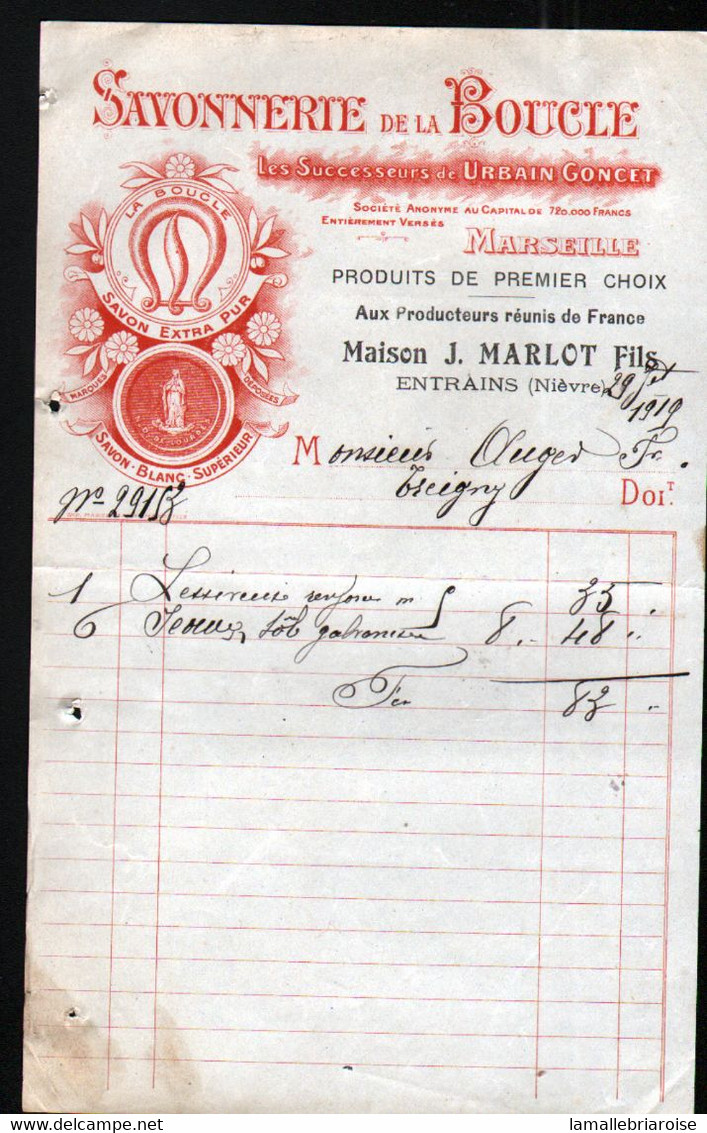 SAVONNERIE DE LA BOUCLE
Les Successeurs de URBAIN GONCET
SOCIÉTÉ ANONYME AU CAPITAL DE 720.000 FRANCS
ENTIÈREMENT VERSÉS
MARSEILLE
LA BOUCLE
SAVON EXTRA PUR
MARQUES DÉPOSÉES
SAVON-BLANC-SUPÉRIEUR
PRODUITS DE PREMIER CHOIX
Aux Producteurs réunis de France
Maison J. MARLOT Fils
ENTRAINS (Nièvre)
29
1919
Monsieur Auger Fr.
Treigny
DOIT
No 2915
1 Lessiveuse 35 "
6 Seaux tôle galvanisée 8 " 48 "
83 "
delcampe.net
lamallebriaroise